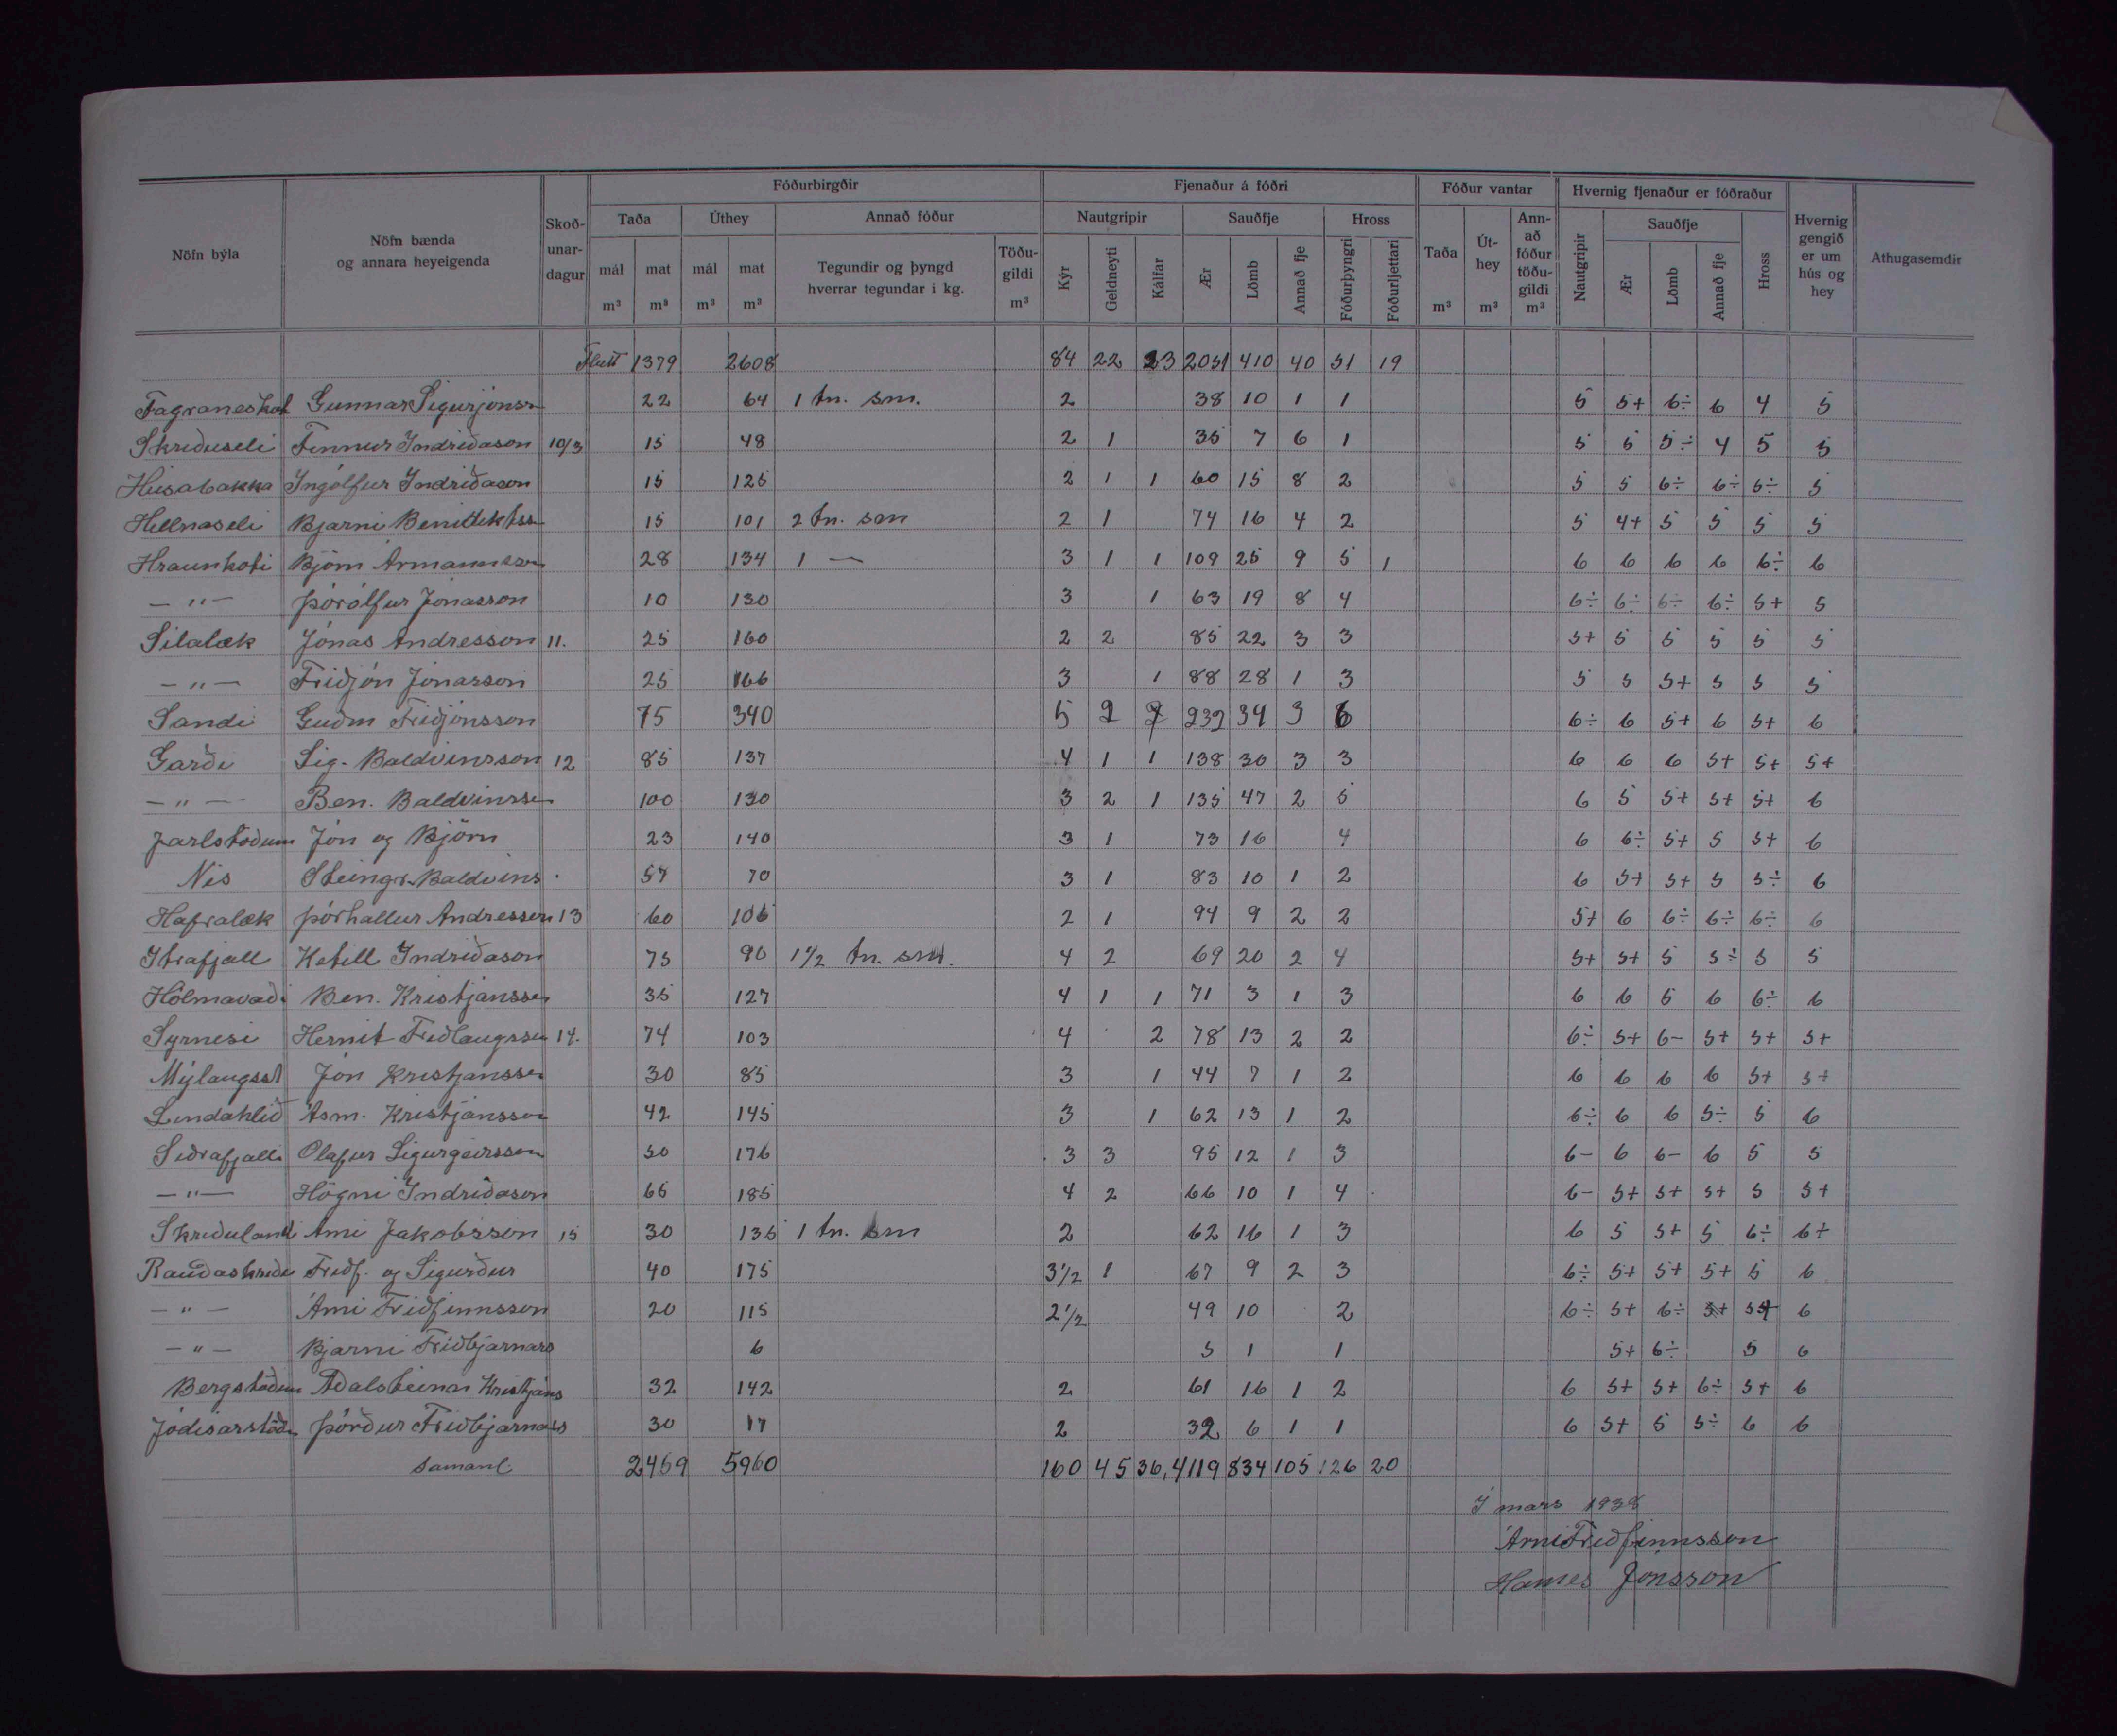 Nöfn býla | Nöfn bænda og annara heyeigenda | Skoðunardagur | Fóðurbirgðir | Fjenaður á fóðri | Fóður vantar | Hvernig fjenaður er fóðraður | Hvernig gengið er um hús og hey | Athugasemdir
Taða | Úthey | Annað fóður | Nautgripir | Sauðfje | Hross | Taða | Úthey | Annað fóður töðugildi | Nautgripir | Sauðfje | Hross
mál | mat | mál | mat | Tegundir og þyngd hverrar tegundar í kg. | Töðugildi | Kýr | Geldneyti | Kálfar | Ær | Lömb | Annað fje | Fóðurþyngri | Fóðurljettari | Ær | Lömb | Annað fje
m³ | m³ | m³ | m³ | m³ | m³ | m³ | m³
Flutt 1379 2608 84 22 23 2051 410 40 51 19
Fagraneskot Gunnar Sigurjónss 22 64 1 tn. sm. 2 38 10 1 1 5 5+ 6÷ 6 4 5
Skriðuseli Finnur Indriðason 10/3 15 48 2 1 35 7 6 1 5 5 5÷ 4 5 5
Húsabakka Ingólfur Indriðason 15 125 2 1 1 60 15 8 2 5 5 6÷ 6÷ 5÷ 5
Hellnaseli Bjarni Benidiktss 15 101 2 tn. sm 2 1 74 16 4 2 5 4+ 5 5 5 5
Hraunkoti Björn Ármannsson 28 134 1 — 3 1 1 109 25 9 5 1 6 6 6 6 6÷ 6
— " — Þórólfur Jónasson 10 130 3 1 63 19 8 4 6÷ 6÷ 6÷ 6÷ 5+ 5
Sílalæk Jónas Andresson 11. 25 160 2 2 85 22 3 3 5+ 5 5 5 5 5
— " — Friðjón Jónasson 25 166 3 1 88 28 1 3 5 5 5+ 5 5 5
Sandi Guðm Friðjónsson 75 340 5 2 2 232 34 3 6 6÷ 6 5+ 6 5+ 6
Garði Sig. Baldvinsson 12 85 137 4 1 1 138 30 3 3 6 6 6 5+ 5+ 5+
— " — Ben. Baldvinsson 100 130 3 2 1 135 47 2 5 6 5 5+ 5+ 5+ 6
Jarlstöðum Jón og Björn 23 140 3 1 73 16 4 6 6÷ 5+ 5 5+ 6
Nes Steingr. Baldvins 57 70 3 1 83 10 1 2 6 5+ 5+ 5 5÷ 6
Hafralæk Þórhallur Andresson 13 60 106 2 1 94 9 2 2 5+ 6 6÷ 6÷ 6÷ 6
Ytrafjall Ketill Indriðason 75 90 1½ tn. sm. 4 2 69 20 2 4 5+ 5+ 5 5÷ 5 5
Hólmavaði Ben. Kristjánsson 35 127 4 1 1 71 3 1 3 6 6 6 6 6÷ 6
Syrnesi Hernit Friðlaugsson 14. 74 103 4 2 78 13 2 2 6÷ 5+ 6- 5+ 5+ 5+
Mýlaugsst Jón Kristjánsson 30 85 3 1 44 7 1 2 6 6 6 6 5+ 5+
Lindahlíð Ásm. Kristjánsson 42 145 3 1 62 13 1 2 6÷ 6 6 5÷ 5 6
Siðrafjalli Olafur Sigurgeirsson 50 176 3 3 95 12 1 3 6- 6 6- 6 5 5
— " — Högni Indriðason 66 185 4 2 66 10 1 4 6- 5+ 5+ 5+ 5 5+
Skriðuland Árni Jakobsson 15 30 135 1 tn. sm 2 62 16 1 3 6 5 5+ 5 6÷ 6÷
Rauðaskriðu Friðf. og Sigurður 40 175 3½ 1 67 9 2 3 6÷ 5+ 5+ 5+ 5 6
— " — Árni Friðfinnsson 20 115 2½ 49 10 2 6÷ 5+ 6÷ 5+ 6
— " — Bjarni Friðbjarnars 6 5 1 1 5+ 6÷ 5 6
Bergstöðum Aðalsteinn Kristjáns 32 142 2 61 16 1 2 6 5+ 5+ 6÷ 5+ 6
Jódísarstöðu Þórður Friðbjarnars 30 17 2 32 6 1 1 6 5+ 5 5÷ 6 6
Samanl. 2459 5960 160 45 36, 4119 834 105 126 20
Í mars 1938
Árni Friðfinnsson
Hannes Jónsson